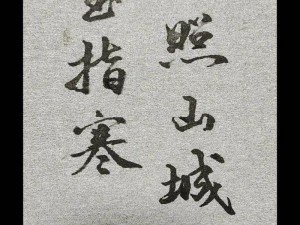 照山城
指寒